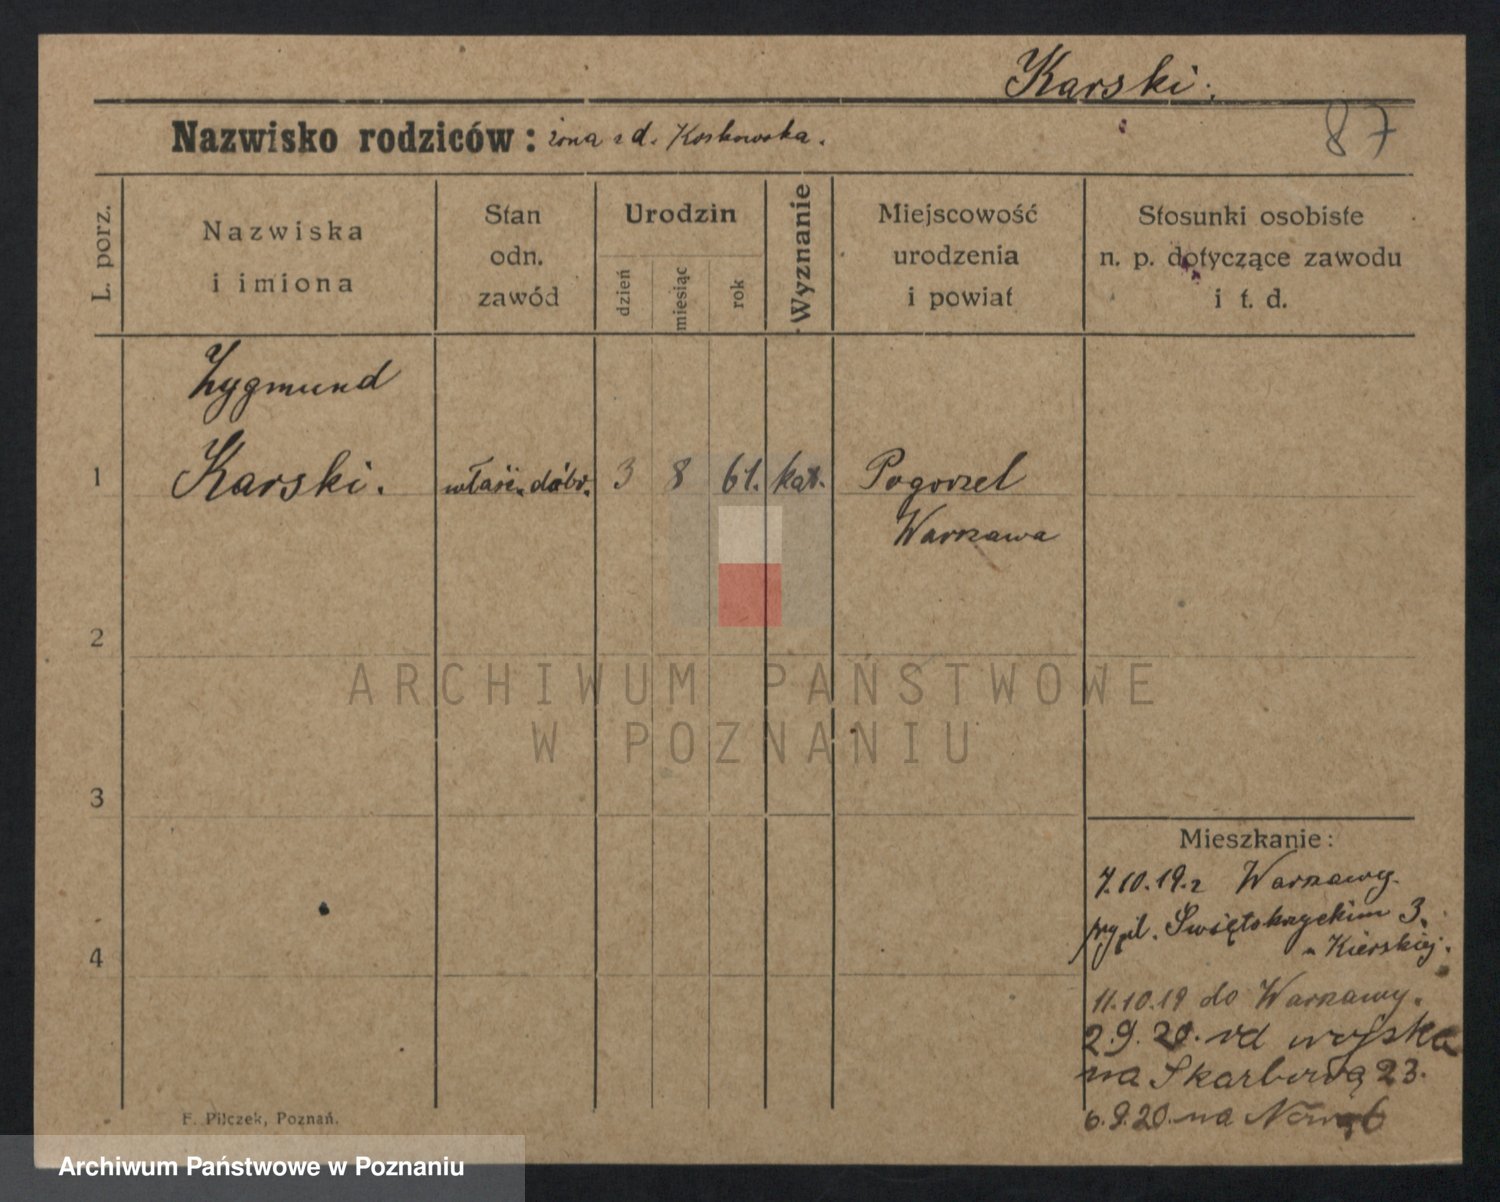 Karski.
87
Nazwisko rodziców: żona z d. Koskowska.
L. porz.
Nazwiska
i imiona
Stan
odn.
zawód
Urodzin
dzień
miesiąc
rok
Wyznanie
Miejscowość
urodzenia
i powiat
Stosunki osobiste
n. p. dotyczące zawodu
i t. d.
Zygmund
1 Karski. właśc. dóbr. 3 8 61. kat. Pogorzel
Warszawa
2
ARCHIWUM PAŃSTWOWE
W POZNANIU
3
Mieszkanie:
7.10.19. z Warszawy.
pl. Świętokrzyskim 3.
Kierskiej.
4
11.10.19 do Warszawy.
2.9.20. od wojska
na Skarbową 23.
6.9.20. na Nową 6
F. Pilczek, Poznań.
Archiwum Państwowe w Poznaniu